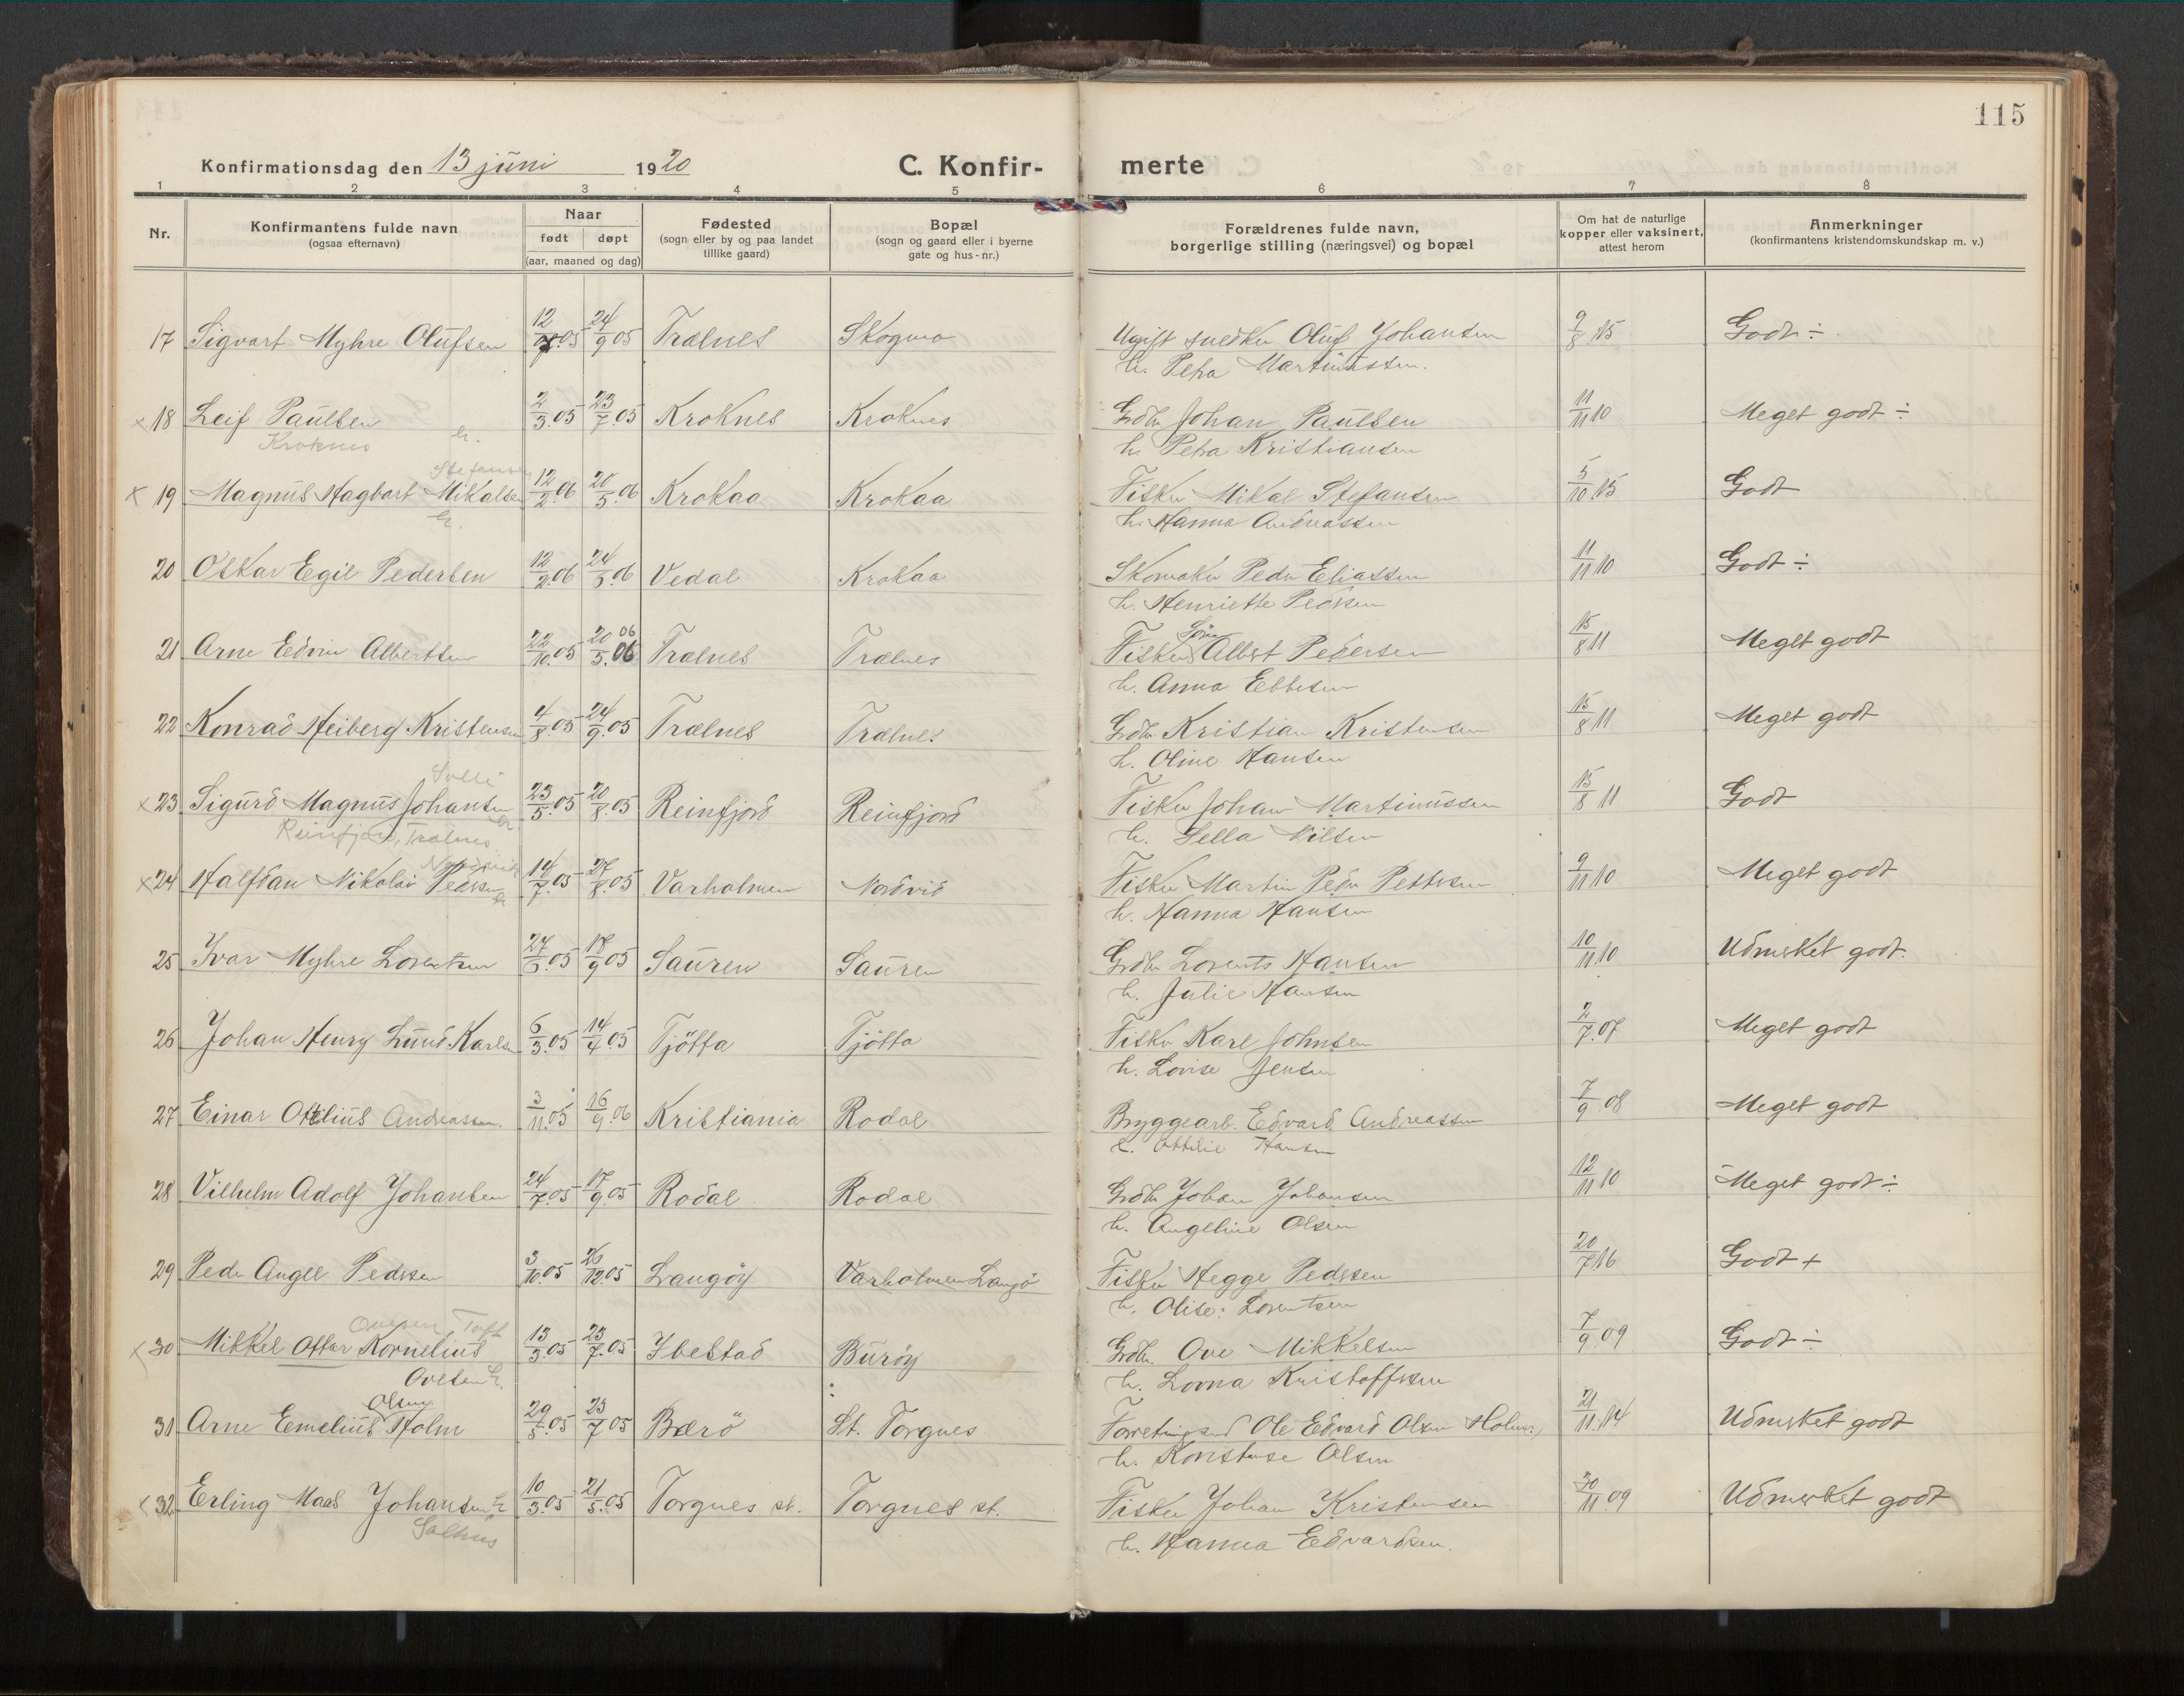 115
Konfirmationsdag den 13 juni 1920 C. Konfir- merte
1 2 3 4 5 6 7 8
Nr. Konfirmantens fulde navn (ogsaa efternavn) Naar født døpt (aar, maaned og dag) Fødested (sogn eller by og paa landet tillike gaard) Bopæl (sogn og gaard eller i byerne gate og hus-nr.) Forældrenes fulde navn, borgerlige stilling (næringsvei) og bopæl Om hat de naturlige kopper eller vaksinert, attest herom Anmerkninger (konfirmantens kristendomskundskap m. v.)
17 Sigvart Myhre Olufsen 12/7.05 24/9 05 Trælnes Skogmo Ugift snedker Oluf Johansen 9/8.15 Godt ÷
h. Petra Martinussen.
× 18 Leif Paulsen 2/3.05 23/7.05 Kroknes Kroknes Grdbr Johan Paulsen 11/11 10 Meget godt ÷
Kroknes h. h. Petra Kristiansen
Stefansen
× 19 Magnus Hagbart Mikalsen 12/2.06 20/5.06 Krokaa Krokaa Fisker Mikal Stefansen 5/10.15 Godt
h. h. Hanna Andreassen
20 Oskar Egil Pedersen 12/2.06 24/5.06 Vedal Krokaa Skomaker Peder Eliassen 11/11 10 Godt ÷
h. Henriette Pedersen
21 Arne Edvin Albertsen 22/10.05 20/5.06 06 Trælnes Trælnes Fisker Albert Pedersen 15/8 11 Meget godt
h. Anna Ebbesen
22 Konrad Heiberg Kristensen 4/8.05 24/9.05 Trælnes Trælnes Grdbr Kristian Kristensen 15/8 11 Meget godt
h. Oline Hansen
× 23 Sigurd Magnus Johansen 23/5.05 20/8.05 Reinfjord Reinfjord Fisker Johan Martinussen 15/8 11 Godt
Reinfjord, Trælnes h. Sella Nilsen
× 24 Halfdan Nikolai Pedersen 14/7.05 27/8.05 Varholmen Nordvid Fisker Martin Peder Pettersen 9/11 10 Meget godt
h. Hanna Hansen
25 Ivar Myhre Lorentsen 27/5.05 17/9 05 Sauren Sauren Grdbr Lorents Hansen 10/11.10 Udmerket godt.
h. Julie Hansen
26 Johan Henry Lund Karlsen 6/3.05 14/4.05 Tjötta Tjötta Fisker Karl Johnsen 2/7.07 Meget godt
h. Lovise Jensen
27 Einar Ottilius Andreassen. 3/11.05 16/9.06 Kristiania Rodal Bryggearb. Edvard Andreassen 7/9 08 Meget godt
h. Ottilie Hansen
28 Vilhelm Adolf Johansen 24/7.05 17/9.05 Rodal Rodal Grdbr Johan Johansen 12/11 10 Meget godt ÷
h. Angeline Olsen
29 Peder Angel Pedersen 3/10.05 26/12.05 Langöy Varholmen Langö Fisker Hegge Pedersen 20/7.16 Godt +
h. Olise: Lorentsen
Ovesen Toft
× 30 Mikkel Ottar Kornelius 13/3.05 23/7.05 Ibestad Buröy Grdbr. Ove Mikkelsen 7/9.09 Godt ÷
Ovesen h. h. Lovna Kristoffersen
Olsen
31 Arne Emelius Holm 29/5.05 23/7 05 Bærö St. Torgnes Forretningsd Ole Edvard Olsen Holm, 21/11.14 Udmerket godt
h. Konstanse Olsen
× 32 Erling Maas Johansen h 10/3.05 21/5.05 Torgnes st. Torgnes st. Fisker Johan Kristensen 30/11.09 Udmerket godt
Salhus h. Hanna Edvardsen.